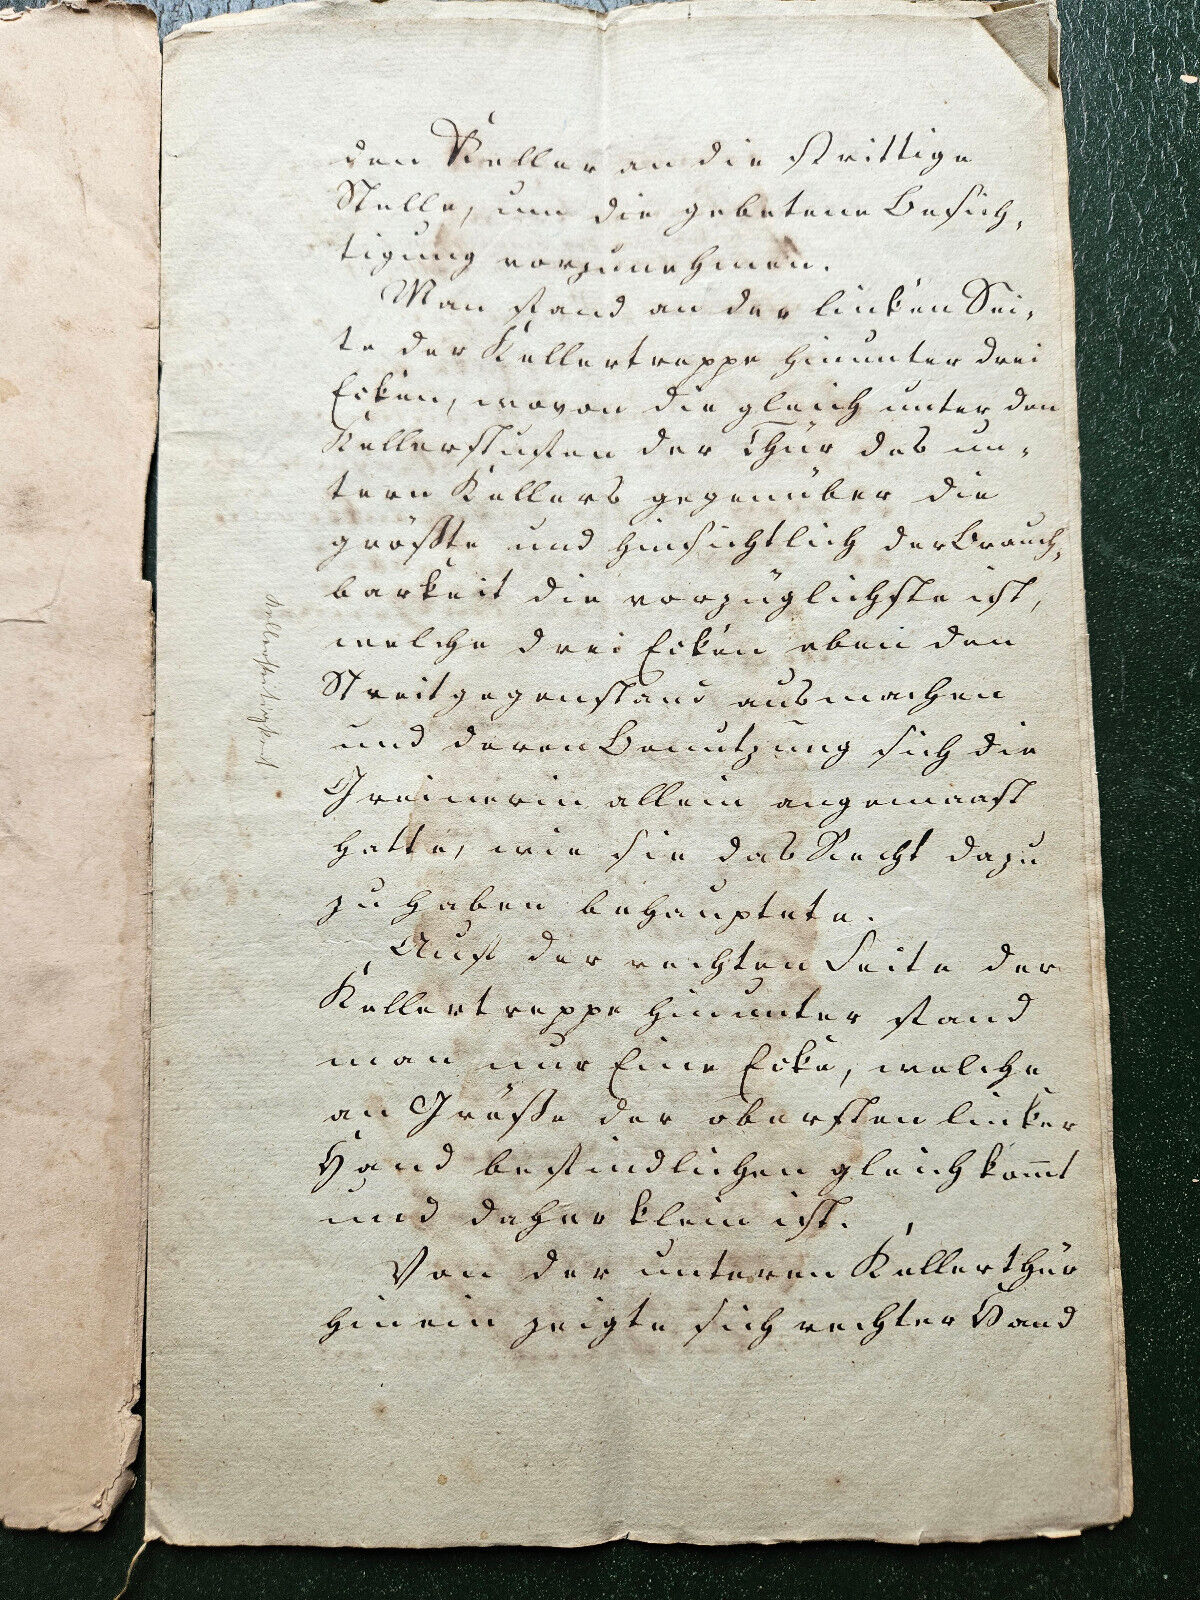 den Keller an die strittige
Stelle, um die gebetene Besich,
tigung vorzunehmen.
Man fand an der linken Sei,
te der Kellertreppe hinunter drei
Ecken, wovon die gleich unter den
Kellerstufen der Thür des un,
tern Kellers gegenüber die
größte und hinsichtlich der Brauch,
barkeit die vorzüglichste ist,
welche drei Ecken eben den
Streitgegenstand ausmachen
und deren Benutzung sich die
Greinerin allein angemaast
hatte, wie sie das Recht dazu
zu haben behauptete.
Auf der rechten Seite der
Kellertreppe hinunter fand
man nur Eine Ecke, welche
an Größe der obersten linker
Hand befindlichen gleich kom̅t
und daher klein ist.
Von der unteren Kellerthür
hinein zeigte sich rechter Hand